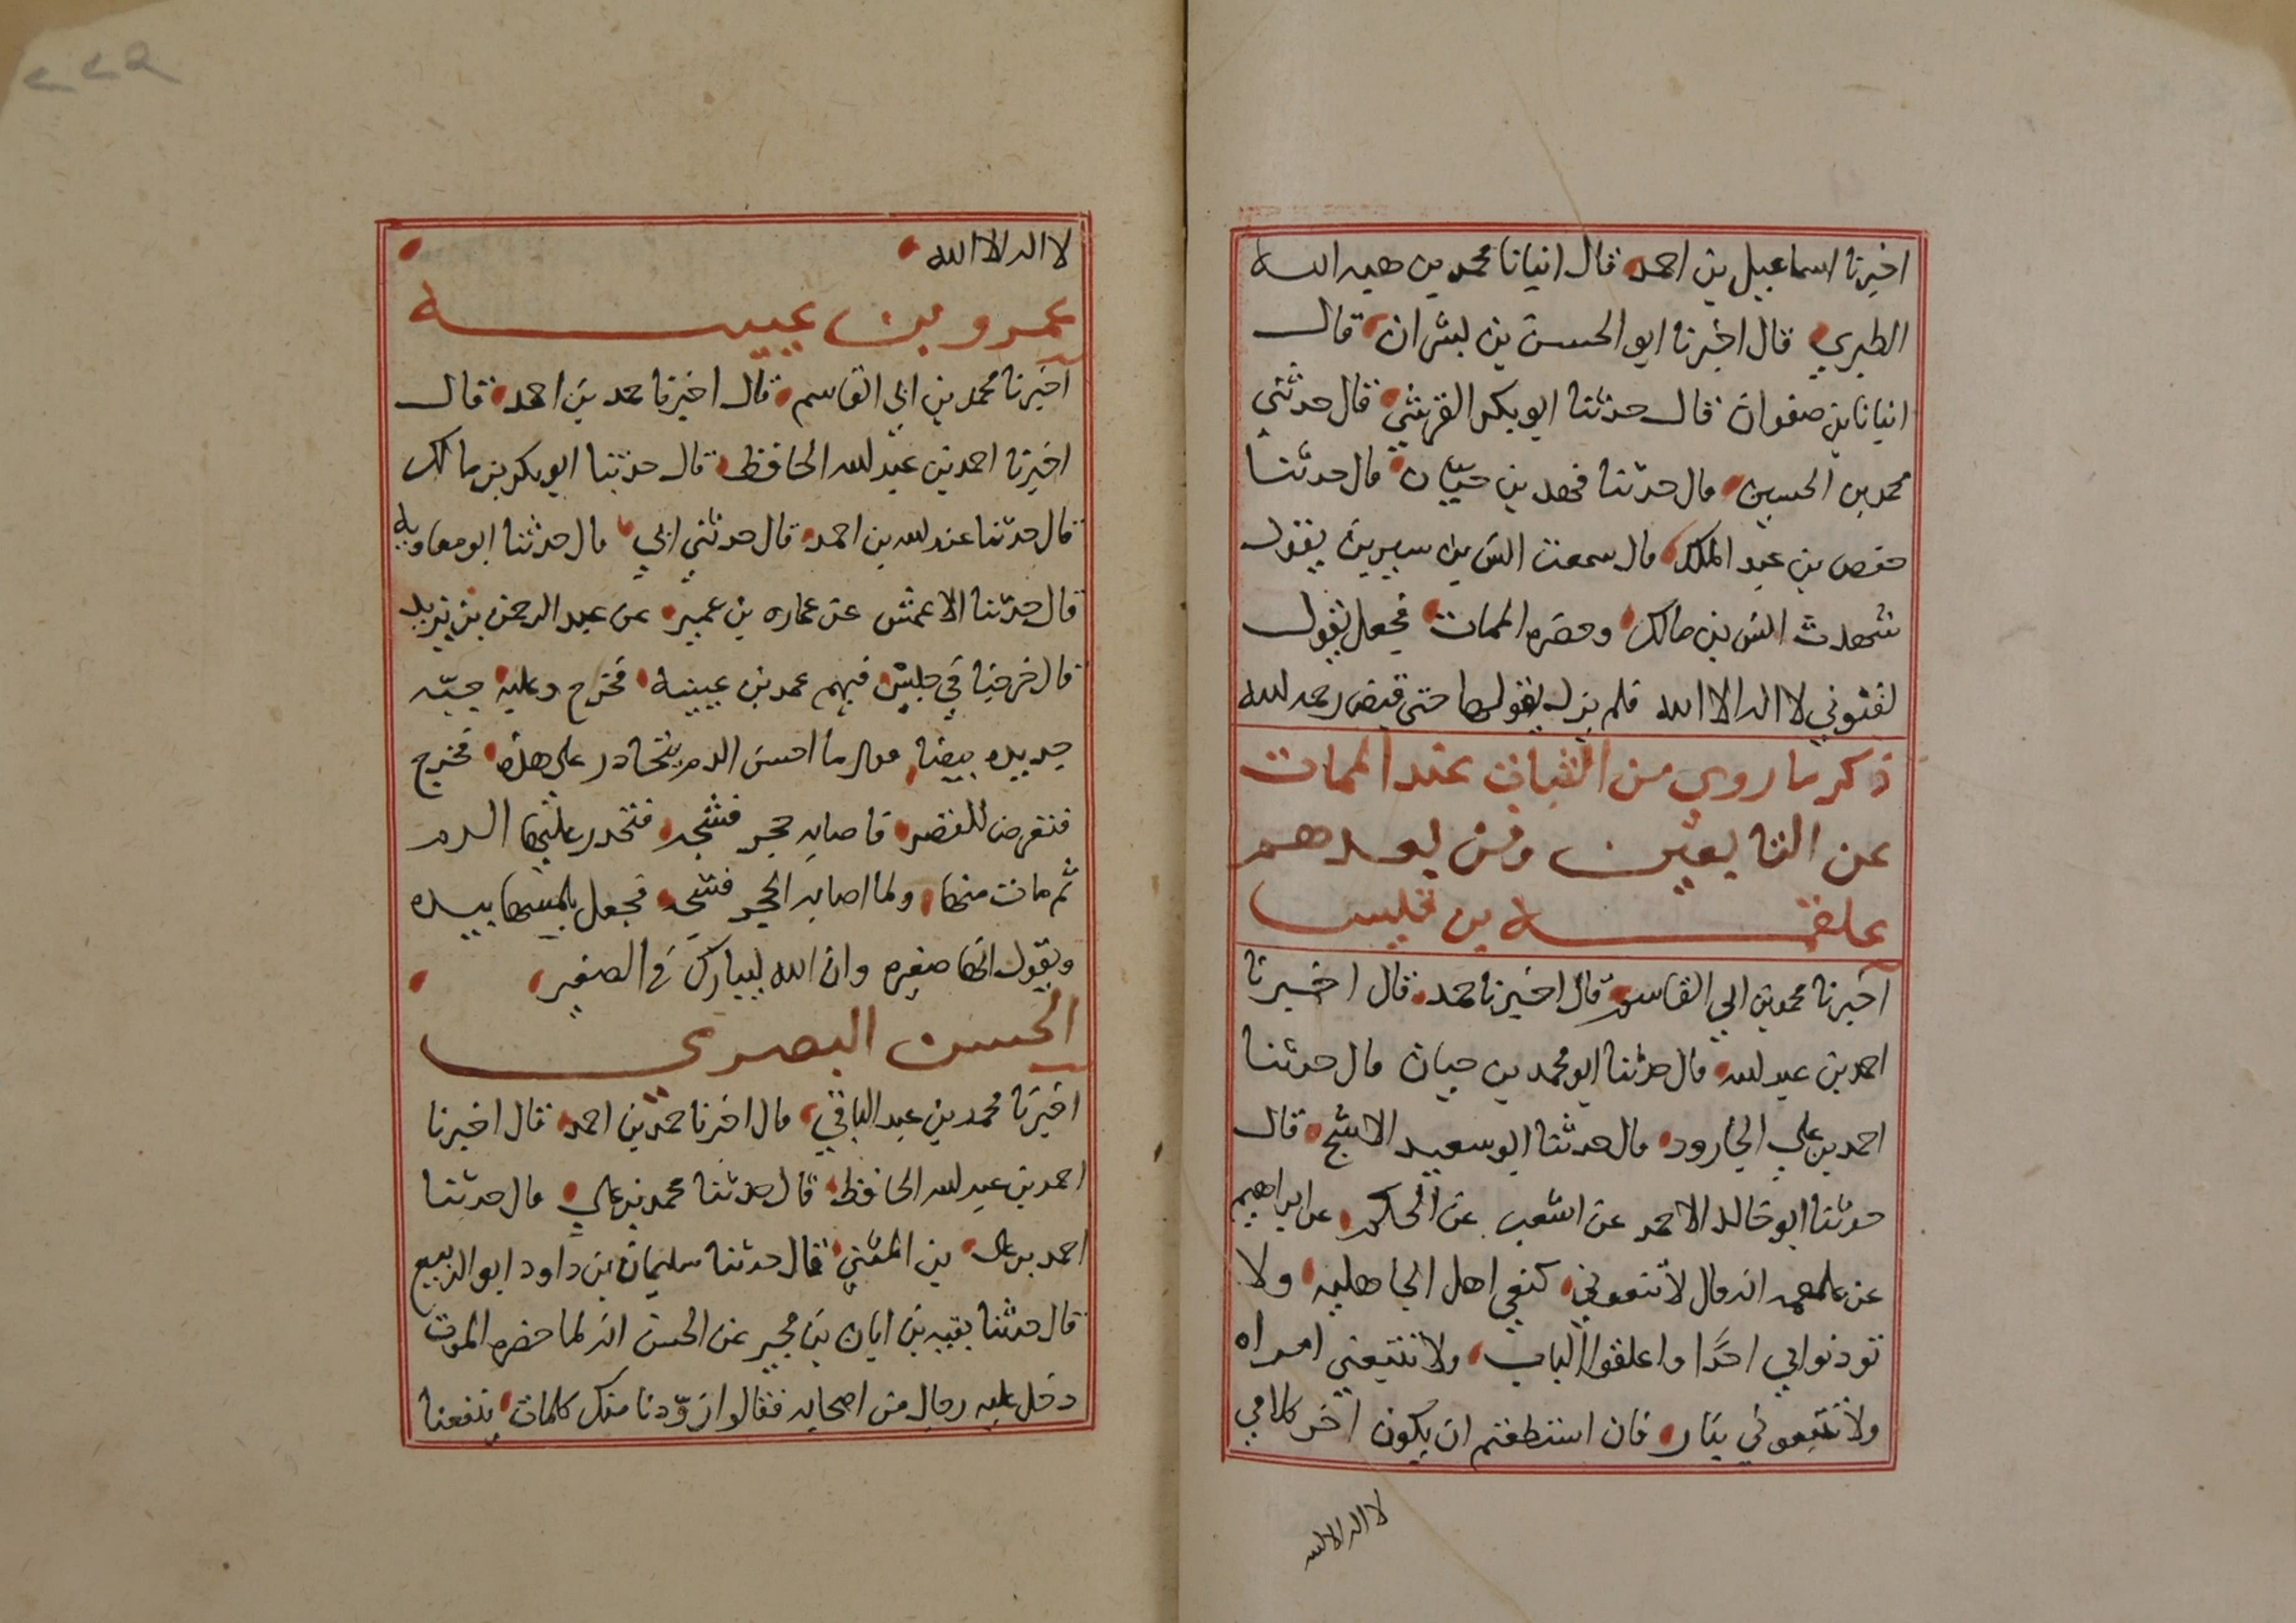 اخبرنا اسماعيل بن احمد قال انبانا محمد بن هبه الله
الطبري قال اخبرنا ابو الحسن بن بشران قال
انبانا بن صفوان قال حدثنا ابو بكر القرشي قال حدثني
محمد بن الحسين قال حدثنا فهد بن حيان قال حدثنا
حفص بن عبد الملك قال سمعت انس بن سيرين يقول
شهدت انس بن مالك وحضره الممات فجعل يقول
لقنوني لا اله الا الله فلم يزل يقولها حتى قبض رحمه الله
ذكر ما روي من الثبات عند الممات
عن التابعين ومن بعدهم
علقمه بن قيس
اخبرنا محمد بن ابي القاسم قال اخبرنا حمد قال اخبرنا
احمد بن عبد الله قال حدثنا ابو محمد بن حيان قال حدثنا
احمد بن علي الجارود قال حدثنا ابو سعيد الاشج قال
حدثنا ابو خالد الاحمر عن اشعب عن الحكم عن ابراهيم
عن علقمه انه قال لا تنعوني كنعي اهل الجاهليه ولا
توذنوا بي احدا واغلقوا الباب ولا تتبعني امراه
ولا تتبعوني بنار فان استطعتم ان يكون اخر كلامي
لا اله الا الله
٢٢٩
لا اله الا الله
عمرو بن عبيه
اخبرنا محمد بن ابي القاسم قال اخبرنا حمد بن احمد قال
اخبرنا احمد بن عبد الله الحافظ قال حدثنا ابو بكر بن مالك
قال حدثنا عبد الله بن احمد قال حدثني ابي قال حدثنا ابو معاويه
قال حدثنا الاعمش عن عماره بن عمير عن عبد الرحمن بن يزيد
قال خرجنا في جيش فيهم عمر بن عيينه فخرج وعليه جبه
جديده بيضا فقال ما احسن الدم يتحادر على هذه فخرج
فتعرض للقصر فاصابه حجر فشجه فتحدر عليها الدم
ثم مات منها ولما اصابه الحجر فشجه فجعل يلمسها بيده
ويقول انها صغيره وان الله ليبارك في الصغير
الحسن البصري
اخبرنا محمد بن عبد الباقي قال اخبرنا حمد بن احمد قال اخبرنا
احمد بن عبد الله الحافظ قال حدثنا محمد بن علي قال حدثنا
احمد بن علي بن المثني قال حدثنا سليمان بن داود ابو الربيع
قال حدثنا بقيه بن ابان بن محبر عن الحسن انه لما حضره الموت
دخل عليه رجال من اصحابه فقالوا زودنا منك كلمات ينفعنا